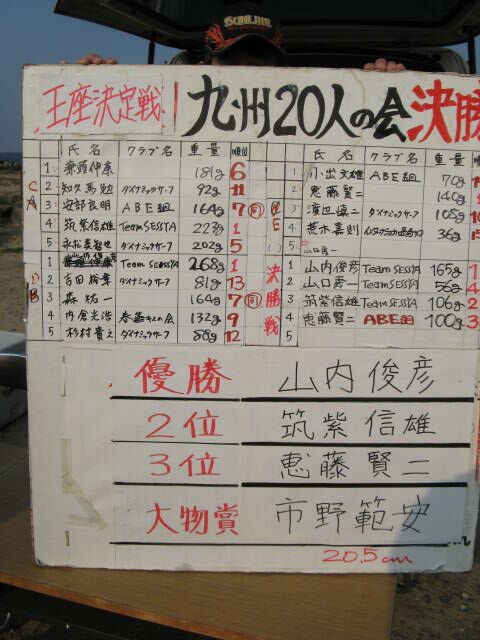 SUNLINE
王座決定戦 九州20人の会 決勝
氏名 クラブ名 重量 順位
1 181g 6
2 ダイナミックサーフ 92g 11
3 安部良明 ABE組 164g 7 同
4 筑紫信雄 TeamSESSYA 1
5 ダイナミックサーフ 202g 5
1 TeamSESSYA 268g 1
2 吉田裕幸 ダイナミックサーフ 81g 13
3 森祐一 164g 7 同
4 内倉光浩 132g 9
5 杉村貴之 ダイナミックサーフ 88g 12
氏名 クラブ名 重量
1 小出文雄 ABE組 70g
2 恵藤賢二 140g
3 渡辺慎二 ダイナミックサーフ 108g
4 荒木嘉則 36g
5 山口孝一
決勝戦
1 山内俊彦 TeamSESSYA 165g 1
2 山口孝一 TeamSESSYA 56g 4
3 筑紫信雄 TeamSESSYA 106g 2
4 恵藤賢二 ABE組 100g 3
5
優勝 山内俊彦
2位 筑紫信雄
3位 恵藤賢二
大物賞 市野範安
20.5cm